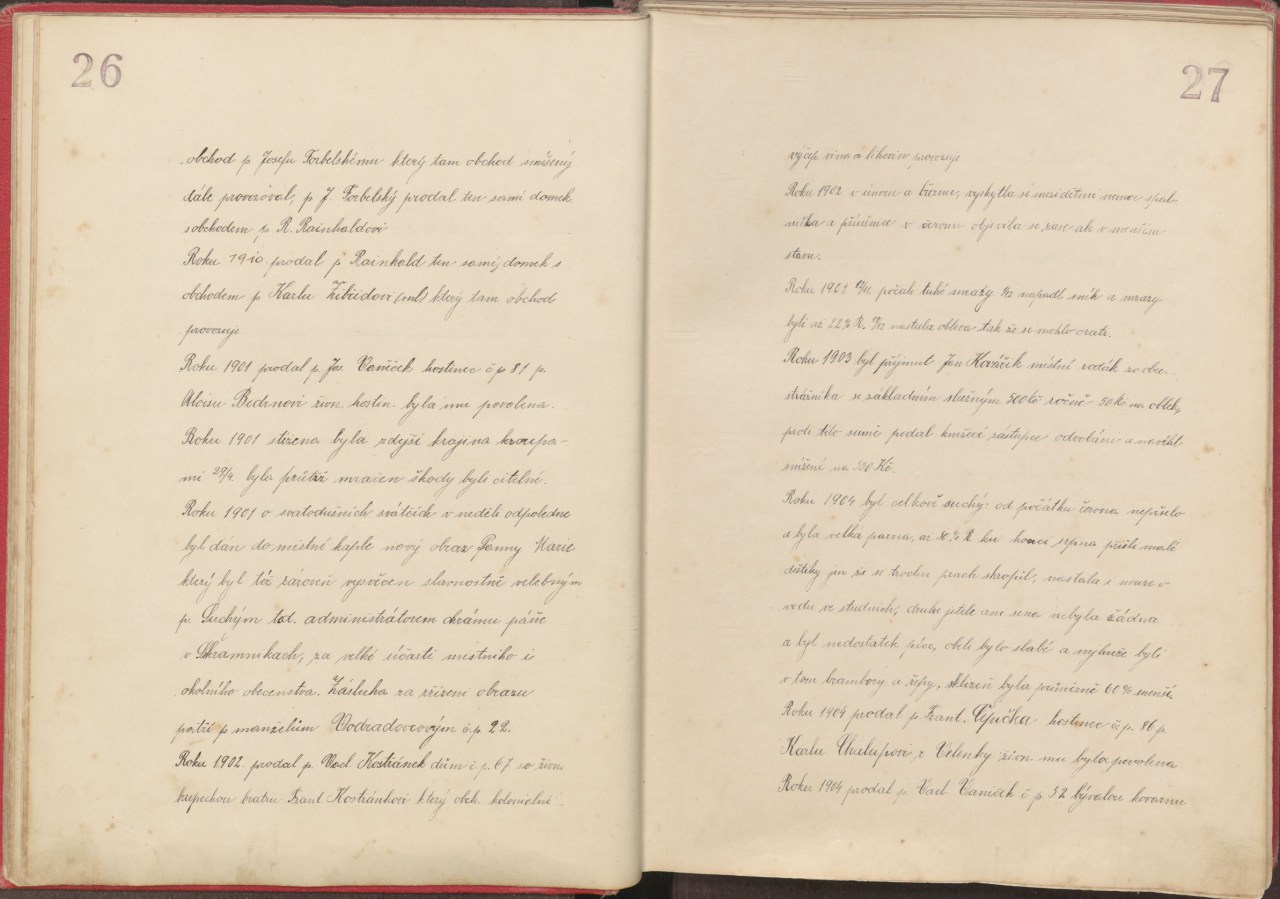 26
obchod p Josefu Torbelskému který tam obchod smíšený
dále provozoval, p J. Torbelský prodal ten samí domek
s obchodem p R. Rainhaldovi
Roku 1910 prodal p Rainhald ten samý domek s
obchodem p Karlu (ml) který tam obchod
provozuje
Roku 1901 prodal p. Jos. Vaníček hostinec č p 81 p.
Aloisu Bedrnovi živn. hostin. byla mu povolena.
Roku 1901 stížena byla zdejší krajina kroupa-
mi 29/4. byla průtrž mračen škody byli citelné.
Roku 1901 o svatodušních svátcích v neděli odpoledne
byl dán do místní kaple nový obraz Panny Marie
který byl též zároveň vysvěcen slavnostně velebným
p. Suchým tod. administrátorem chrámu páně
v Skramnikach, za velké účasti místního i
okolního obecenstva. Zásluha za zřízení obrazu
patří p manželům Vodradovcovým č. p 22.
Roku 1902. prodal p. Václ Kostránek dům č. p. 67 so živn
kupeckou bratru Frant. Kostránkovi který obch. koloniclní
27
výčep vína a lihovin provozuje
Roku 1902 v únoru a březnu, vyskytla se mezi dětmi nemoc spal-
nička a příušnice v červnu objevila se zase ale v menším
stavu.
Roku 1902 počali tuhé mrazy napadl sníh a mrazy
byli až 22% R. nastala obleva tak že se mohlo orati.
Roku 1903 byl přijmut Jan Kovářik místní rodák za obec.
strážníka se základním služným 500 Kč ročně 50 K na oblek,
proti této sumě podal knížecí zástupce odvolání a navrhl
snížení na Kč.
Roku 1904 byl celkově suchý: od počátku června nepršelo
a byla velká parna, až R ku konci srpna přišli malé
deštíky jen že se trochu prach skropil, nastala i nouze o
vodu ve studních, druhé jetele ani sena nebyla žádna
a byl nedostatek píce, obilí bylo slabí a nejhůře byli
v tom brambory a řepy, sklizeň byla průměrně 60% menší.
Roku 1904 prodal p. Frant. Čepička hostinec č. p. 86 p.
Karlu Chalupovi z Velenky živn. mu byla povolena
Roku 1904 prodal p. Václ. Vaníček č p. 52 bývalou kovarnu